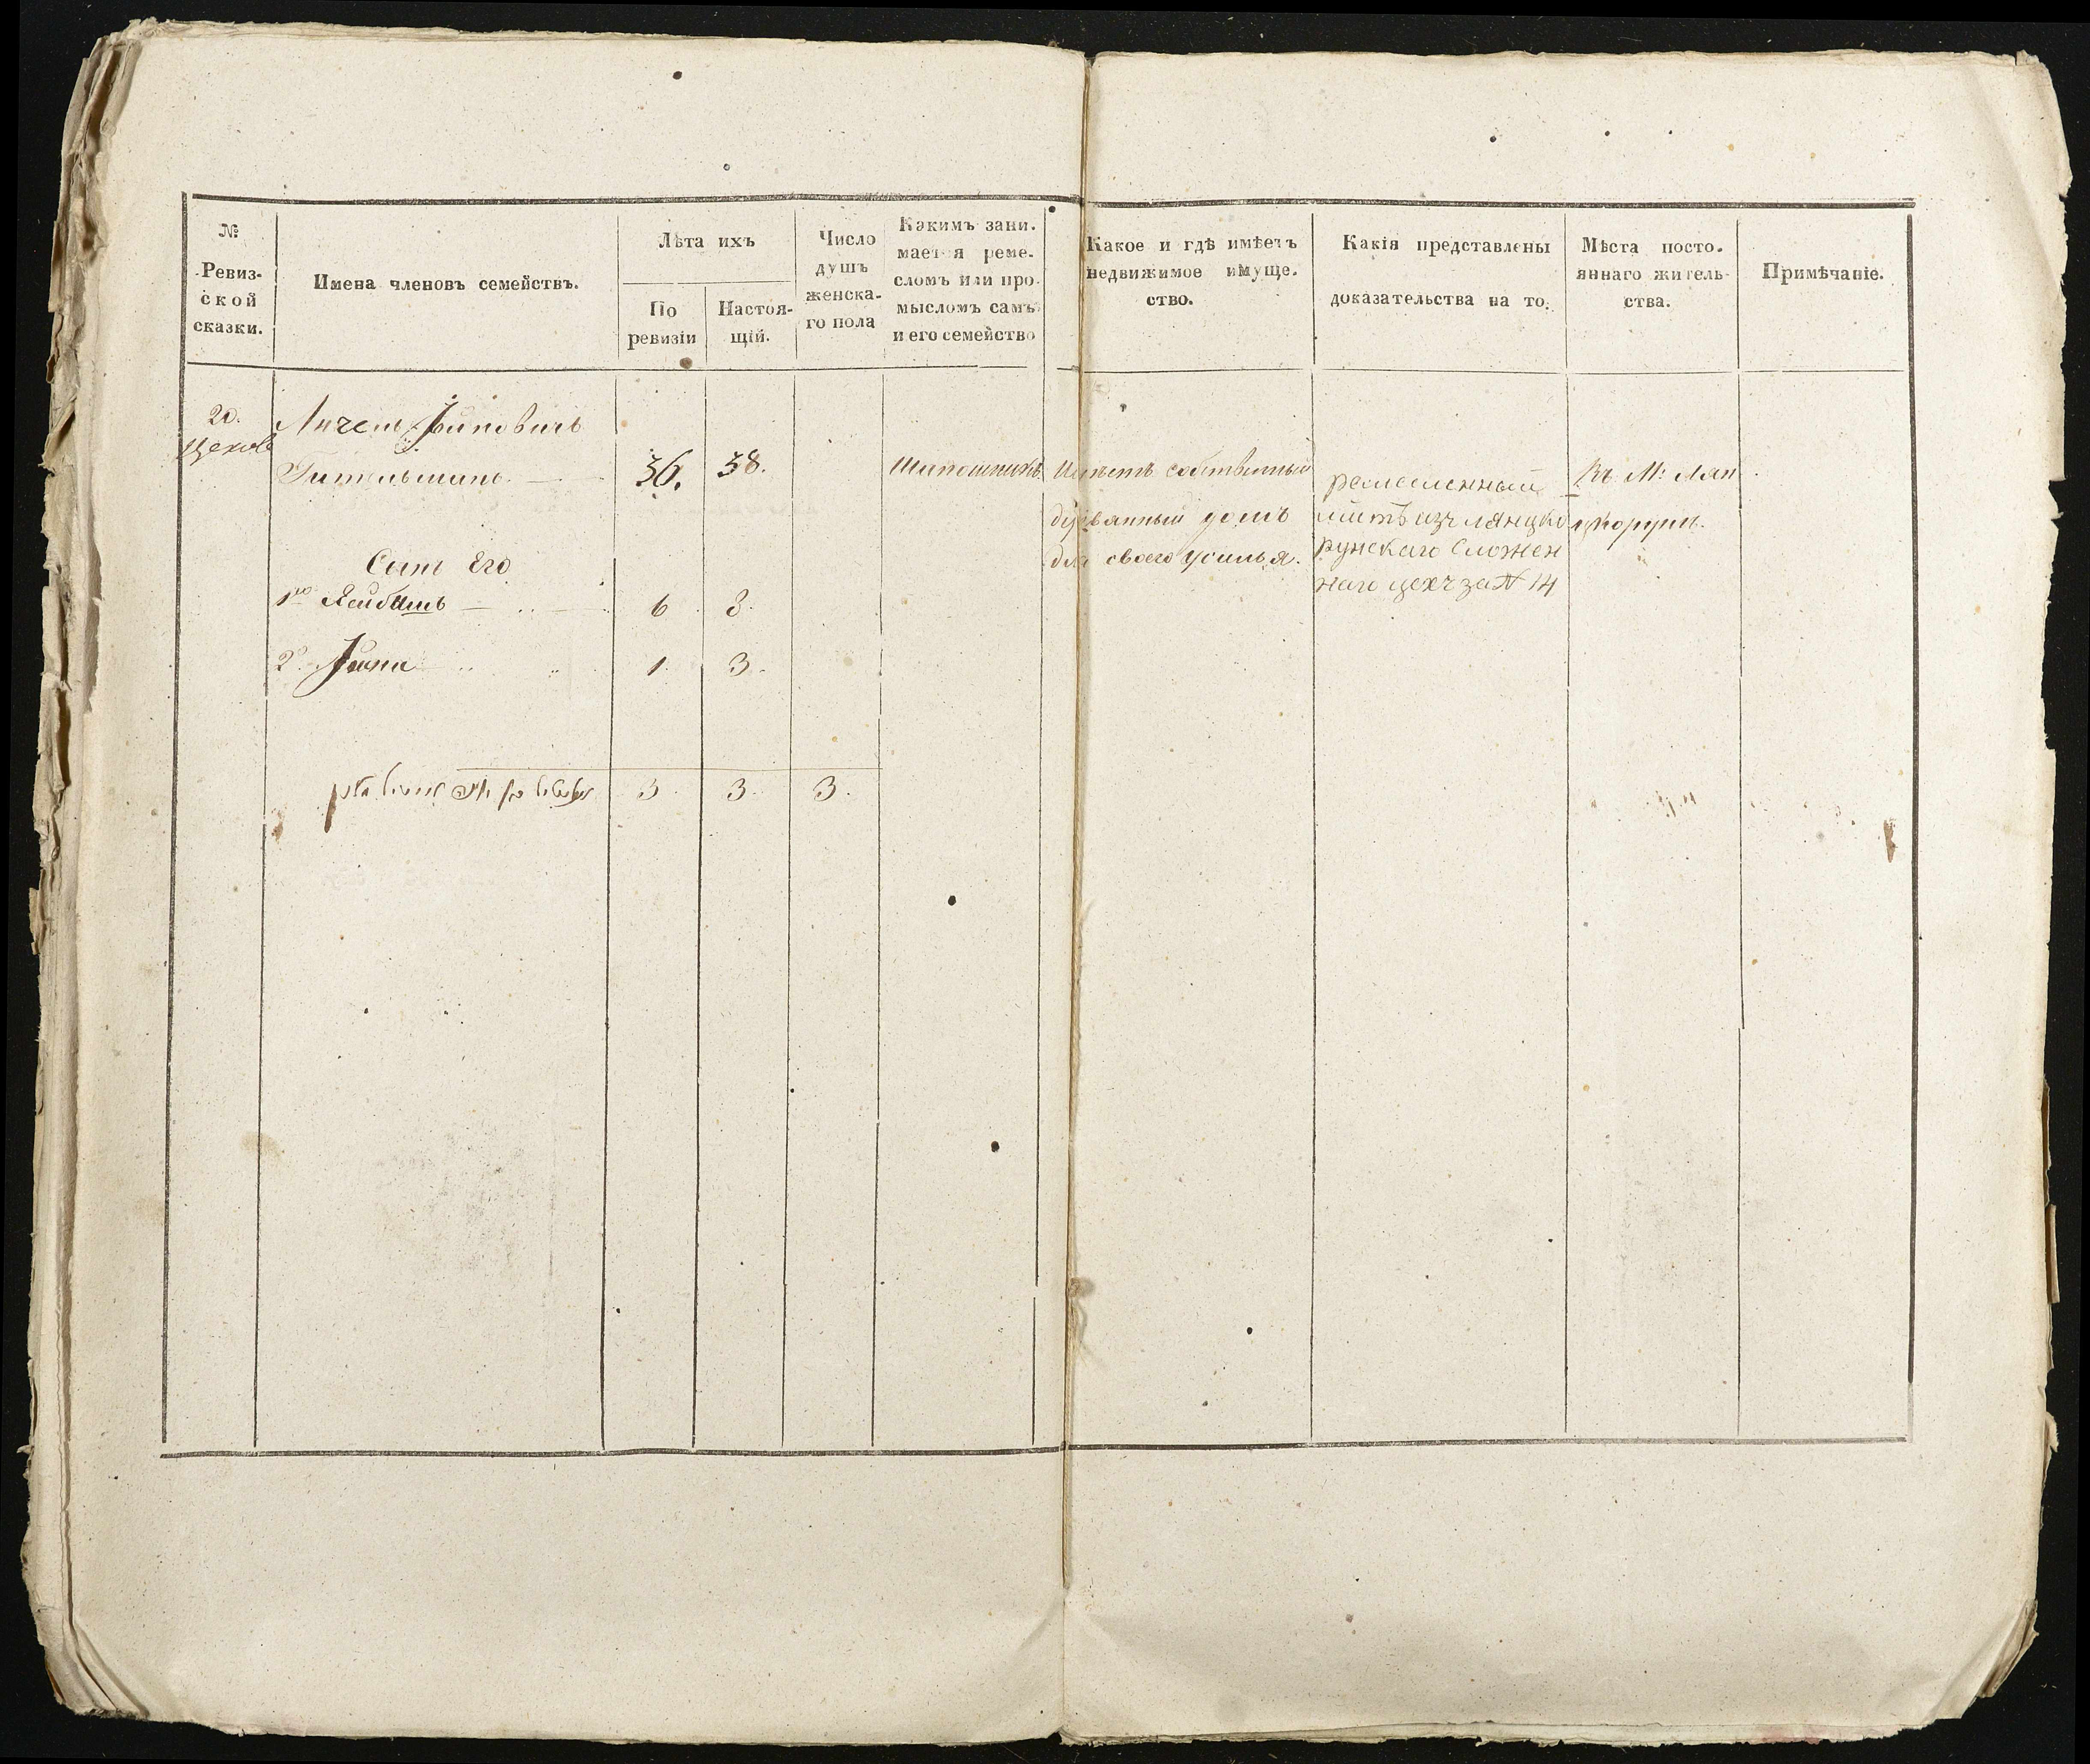 №
Ревиз-
ской
сказки.
Имена членовъ семействъ.
Лѣта ихъ
По
ревизіи
Настоя-
щій.
Число
душъ
женска-
го пола
Какимъ зани-
мается реме-
сломъ или про-
мысломъ самъ
и его семейство
Какое и гдѣ имѣетъ
недвижимое имуще-
ство.
Какія представлены
доказательства на то.
Мѣста посто-
яннаго житель-
ства.
Примѣчаніе.
20.
Цехов
36. 38.
Шапошникъ
Имѣетъ собственный
деревянный домъ
для своего
ремесленный
листъ изъ лянцко
рунскаго сложен
наго цеха за № 14
Въ М: Лян
цкорунѣ.
Сыны Его
1й Лейбишь 6 8.
2й 1. 3.
3. 3. 3.